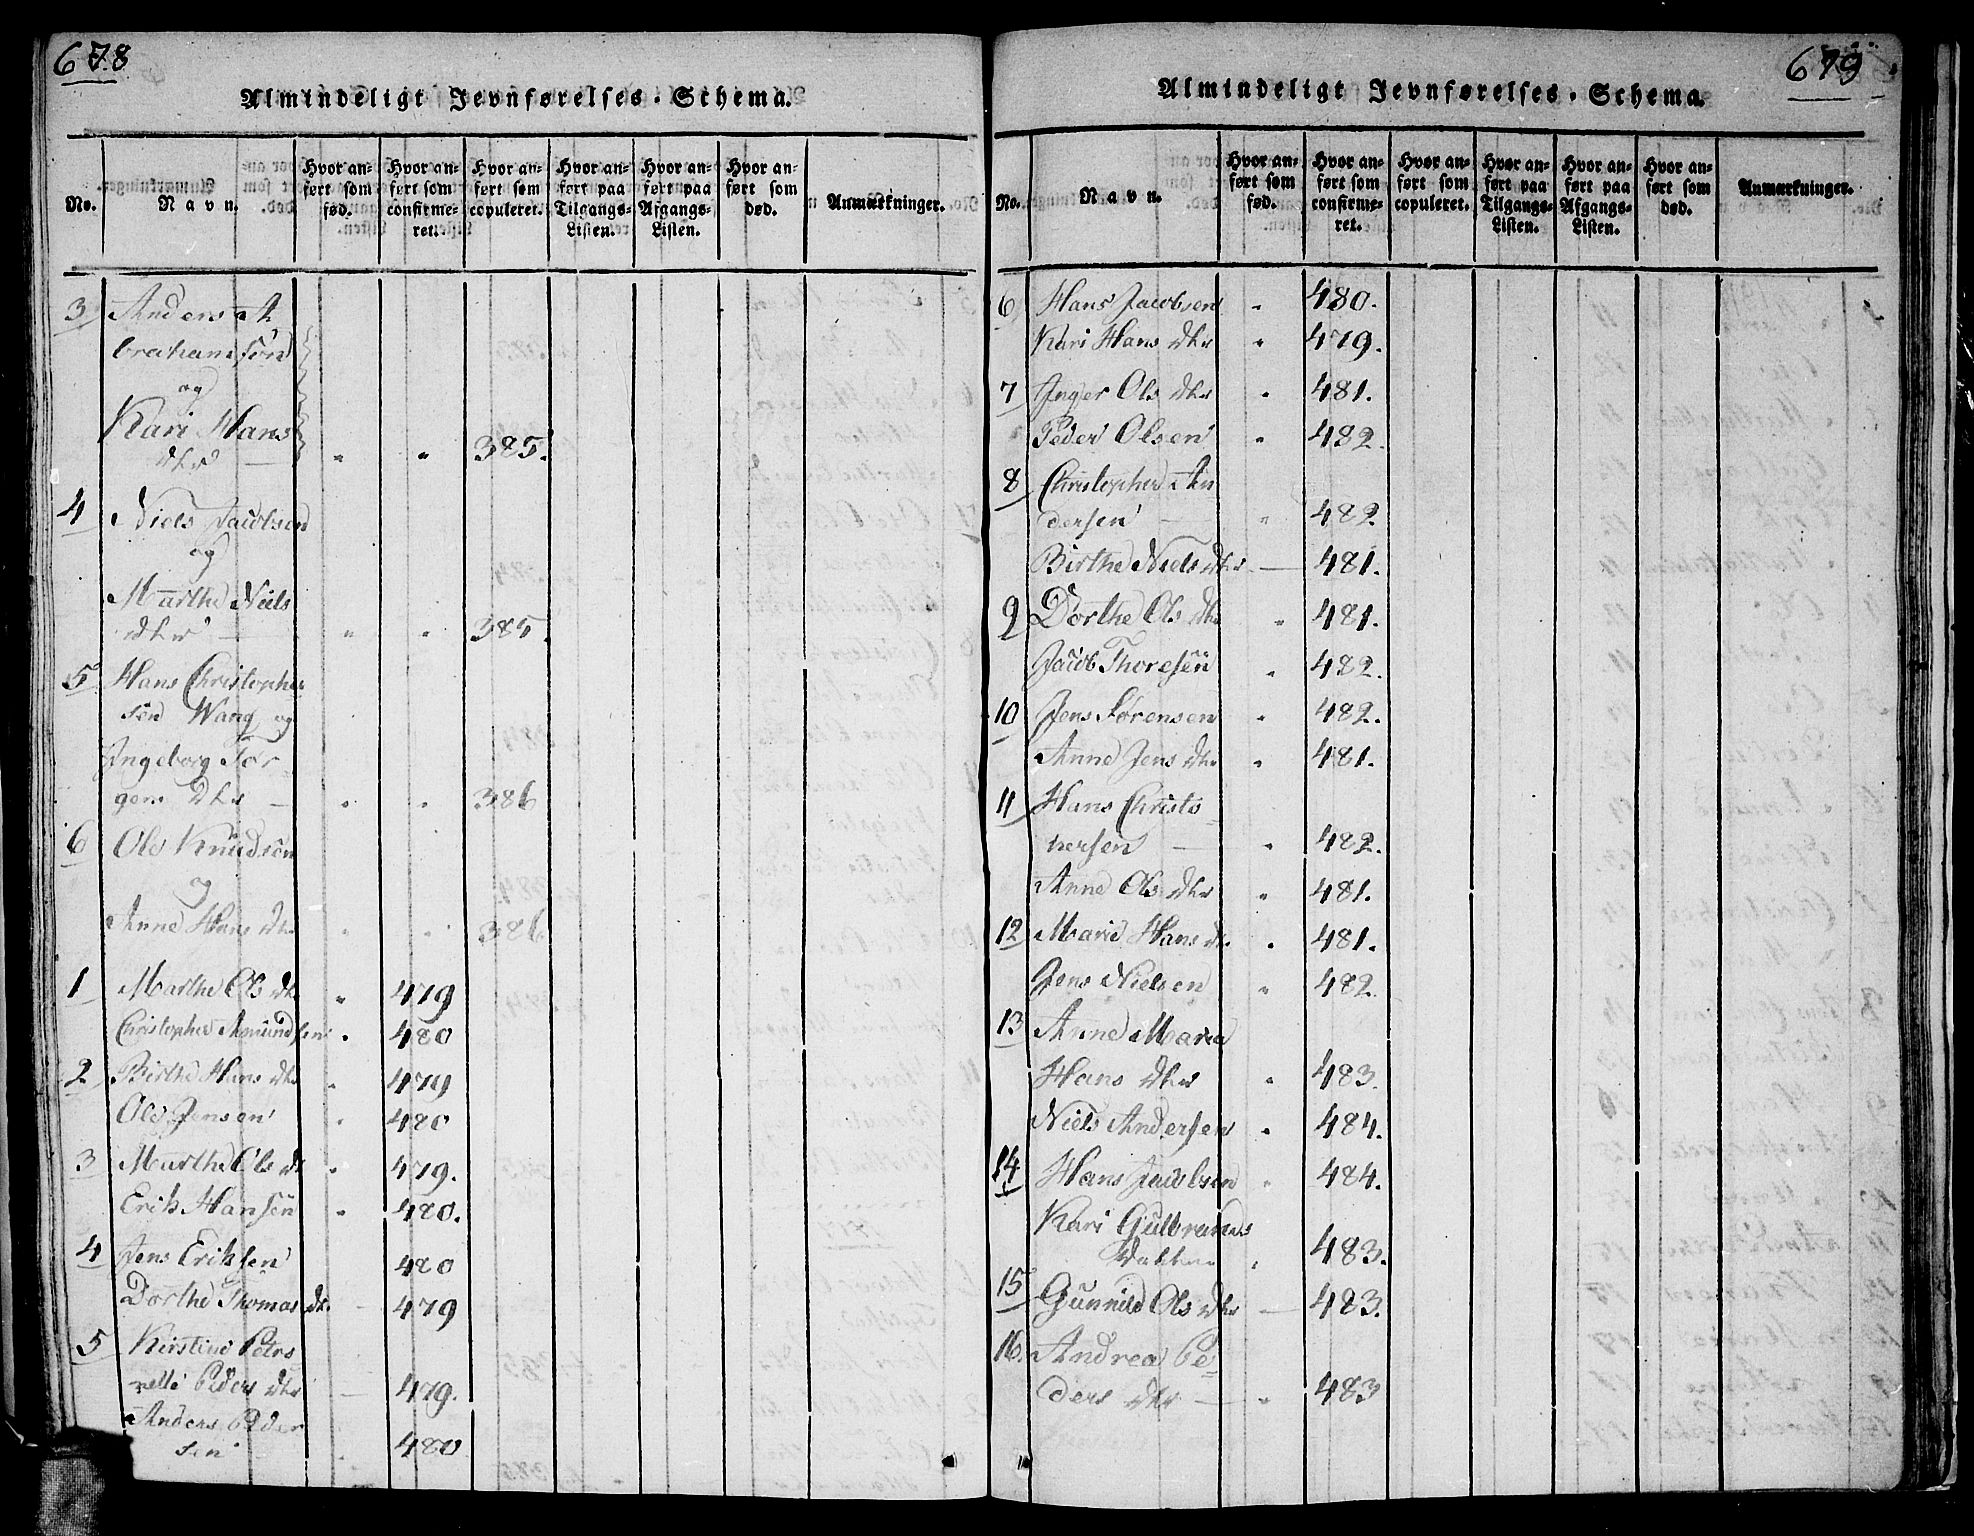 678
Almindeligt Jevnførelses-Schema.
No.
Navn.
Hvor an-
ført som
fød.
Hvor an-
ført som
confirme-
ret.
Hvor an-
ført som
copuleret.
Hvor an-
ført paa
Tilgangs-
Listen.
Hvor an-
ført paa
Afgangs-
Listen.
Hvor an-
ført som
død.
Anmærkninger.
3 Anders A
brahamsøn
og
Kari Hans
dtr — " " 385.
4 Niels Jacobsen
og
Marthe Niels
dtr — " " 385.
5 Hans Christopher
sen Wang og
Ingeborg Jør-
gens dtr — " " 386
6 Ole Knudsøn
og
Anne Hans dtr " " 386
1 Marthe Ols dtr " 479
Christopher Amundsen " 480
2 Birthe Hans dtr " 479
Ole Jensen " 480
3 Marthe Ols dtr " 479.
Erik Hansen " 480.
4 Jens Eriksen 480
Dorthe Thomas dtr. — 479
5 Kirstine Petro
nelle Peders dtr — 479.
Anders Peder
sen " 480
679
Almindeligt Jevnførelses-Schema.
No.
Navn.
Hvor an-
ført som
fød.
Hvor an-
ført som
confirme-
ret.
Hvor an-
ført som
copuleret.
Hvor an-
ført paa
Tilgangs-
Listen.
Hvor an-
ført paa
Afgangs-
Listen.
Hvor an-
ført som
død.
Anmærkninger.
6 Hans Jacobsen " 480.
Kari Hans dtr " 479.
7 Inger Ols dtr " 481.
Peder Olsen " 482.
8 Christopher An
dersen — " 482
Birthe Niels dtr — 481.
9 Dorthe Ols dtr " 481.
Jacob Thoresen " 482.
10 Jens Sørensen " 482.
Anne Jens dtr " 481.
11 Hans Christo
phersen — " 482.
Anne Ols dtr " 481.
12 Marie Hans dtr " 481.
Jens Nielsen " 482.
13 Anne Maria
Hans dtr " 483.
Niels Andersen " 484.
14 Hans Jacobsen " 484.
Kari Gulbrands
datter " 483.
15 Gunnild Ols dtr — 483.
16. Andrea Pe
ders dtr — " 483